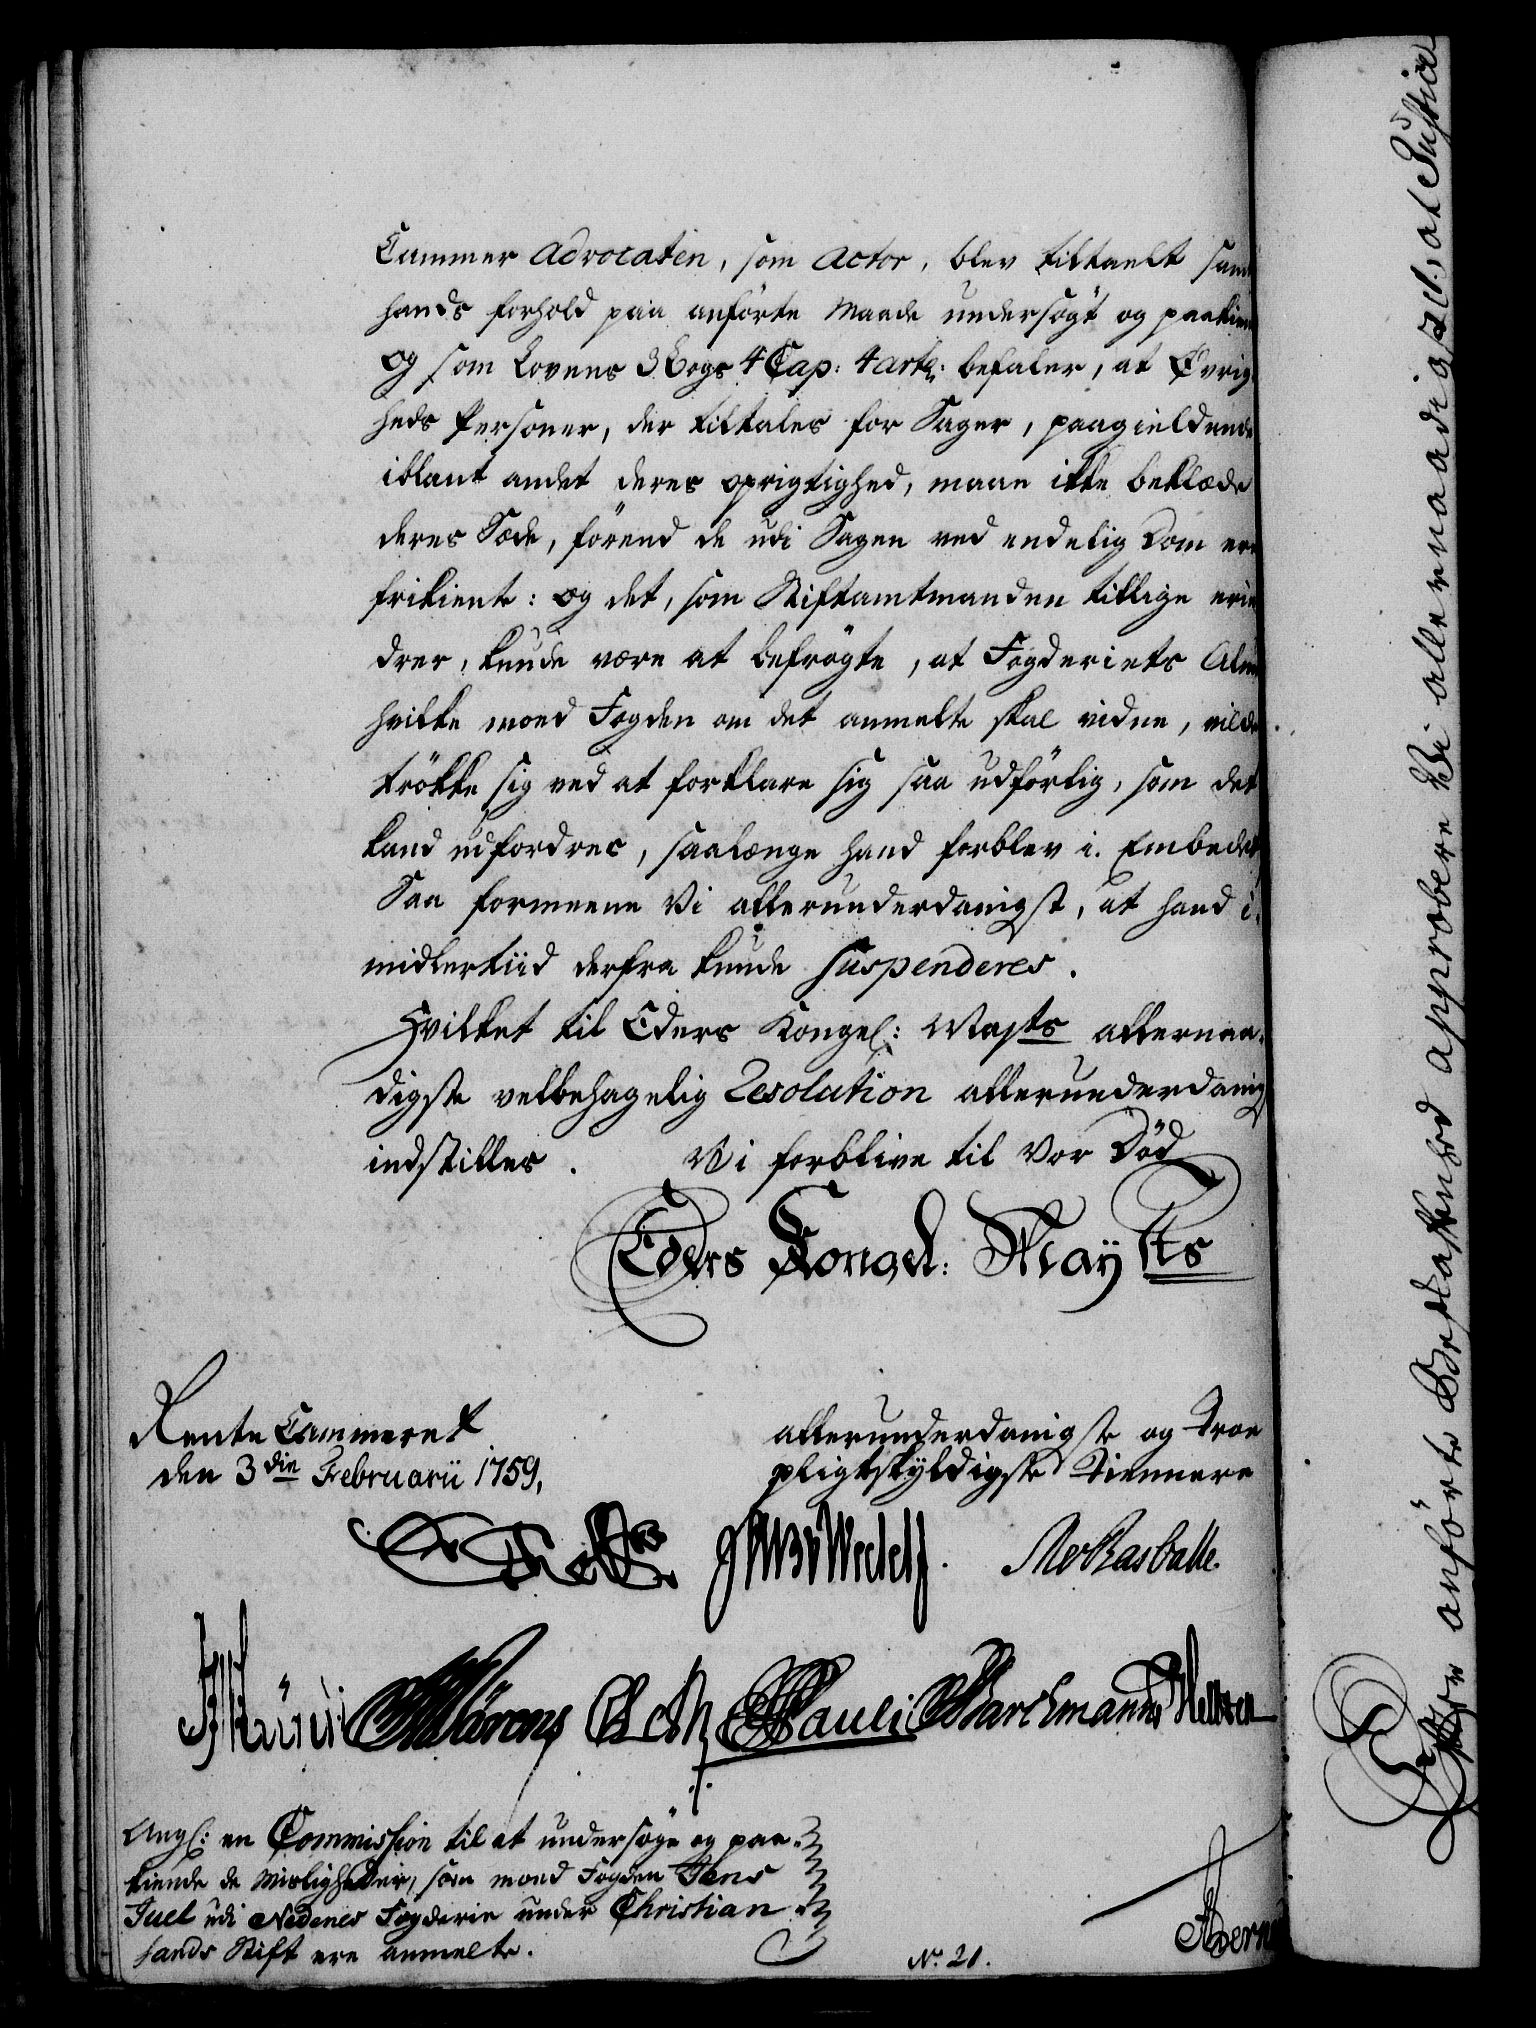 Cammer Advocaten, som Actor, blev tiltaelt samt
hands forhold paa anförte Maade undersögt og paakien
og som Lovens 3 Bogs 4 Cap: 4 art: befaler, at Övrig-
heds Personer, der tiltales for Sager, paagieldende
iblant andet deres oprigtighed, maae ikke beklæde
deres Sæde, förend de udi Sagen ved endelig Dom ere
frikiente: og det, som Stiftamtmanden tillige erin
drer, kunde være at befrögte, at Fogderiets Almu
hvilke moed Fogden om det anmelte skal vidne, vilde
trökke sig ved at forklare sig saa udförlig, som det
kand udfordres, saalænge hand forblev i Embedet
Saa formeene Vi allerunderdanigst, at hand i-
midlertiid derfra kunde suspenderes.
Hvilket til Eders Kongel: Mayts allernaa-
digste velbehagelig Resolution allerunderdanig
indstilles. Vi forblive til Vor Död
Eders Kongel: Mayts
Rente Cammeret
den 3die Februarii 1759.
allerunderdanigste og Troe
pligtskyldigste Tiennere
Wedell.
Rasballe.
Pauli Barchmann
Angl: en Commission til at undersöge og paa-
kiende de Misligheder, som moed Fogden Jens
Juel udi Nedenes Fogderie under Christian-
sands Stift ere anmelte.
No. 21.
Efter anförte Beskaffenhed approbere Vi allernaadigst, at Justice